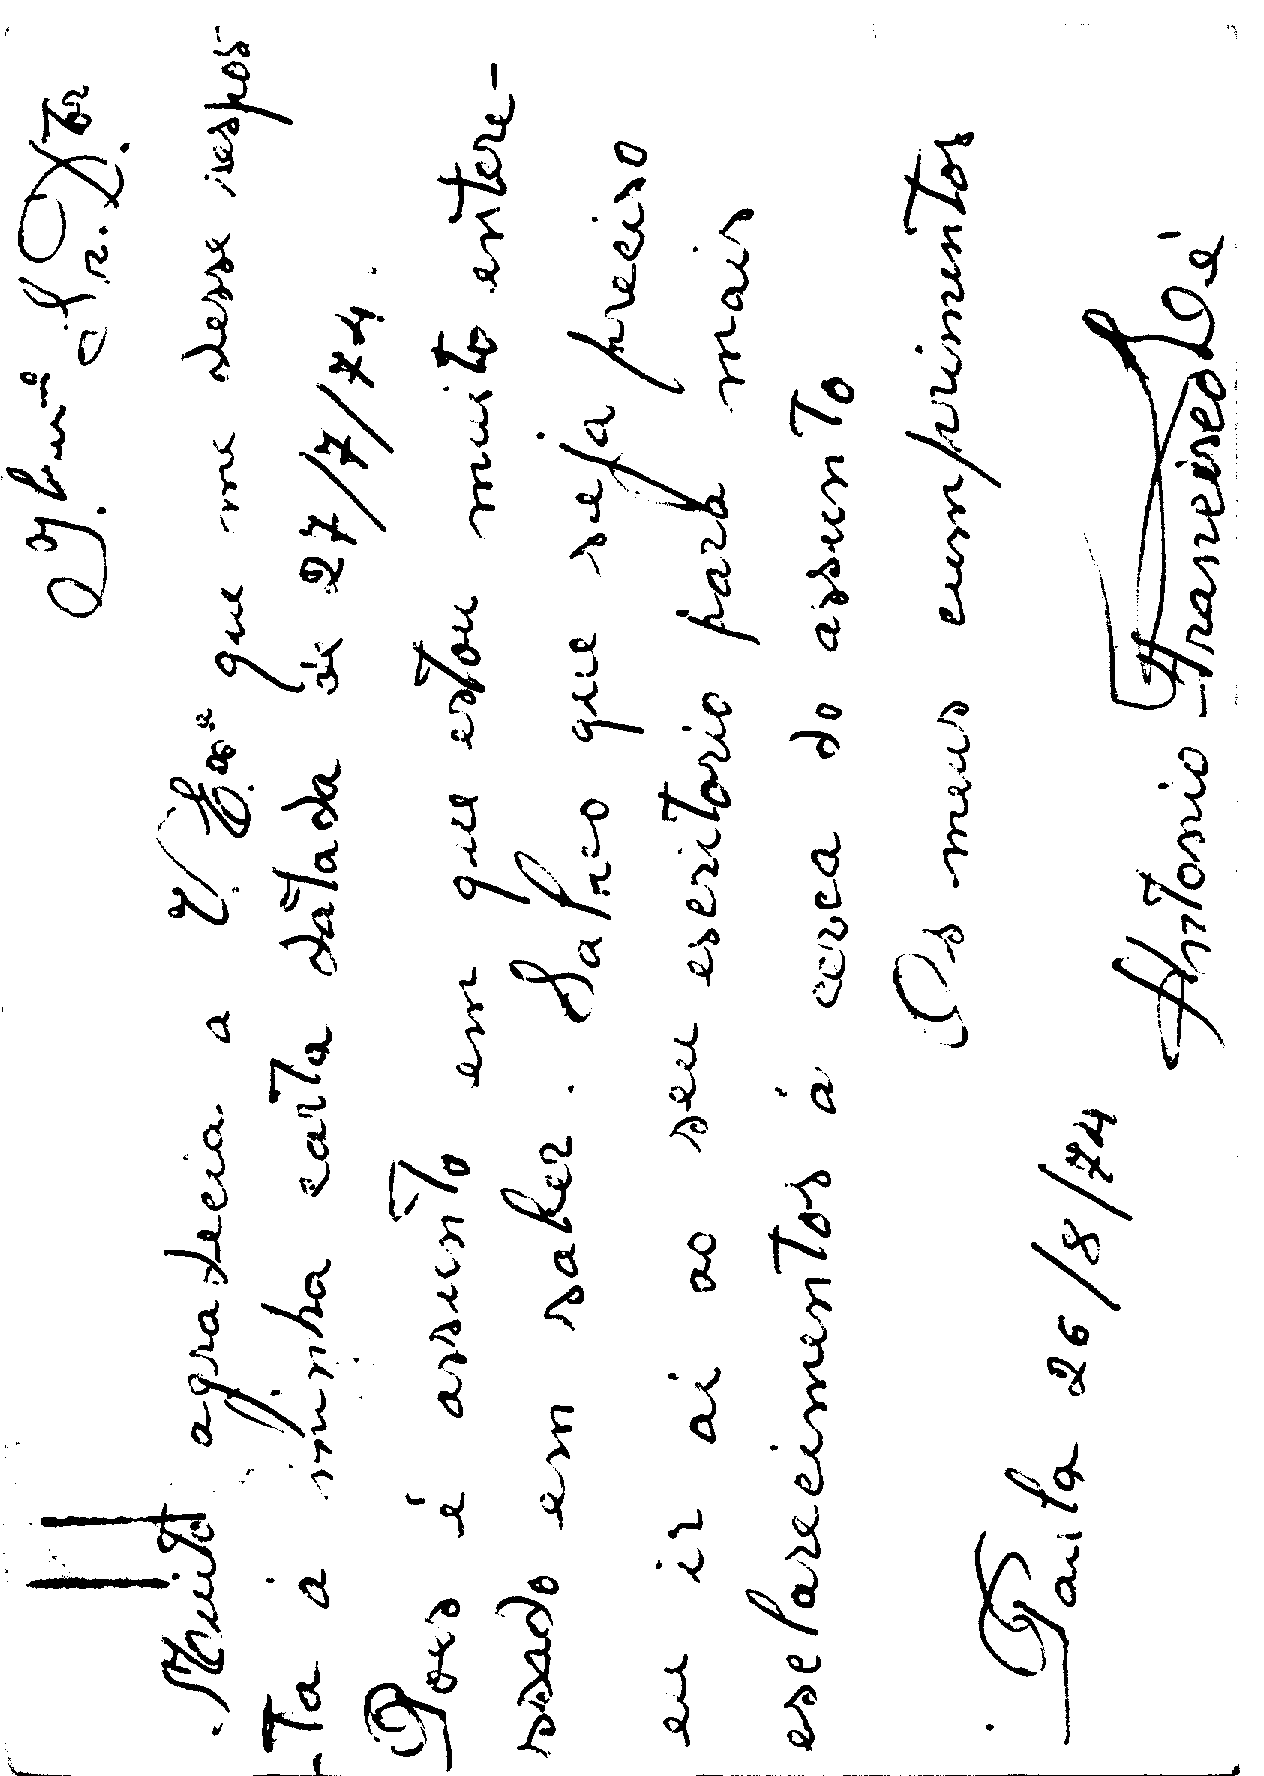 Ilmº Sr. Dor
Muito agradecia a V. Exª que me desse respos
-ta á minha carta datada de 27/7/74.
Pois é assunto em que estou muito entere-
ssado em saber. Salvo que seja preciso
eu ir ai ao seu escritorio para mais
esclarecimentos á cerca do assunto
Os meus cumprimentos
Paila 26/8/74
Antonio Francisco Sé